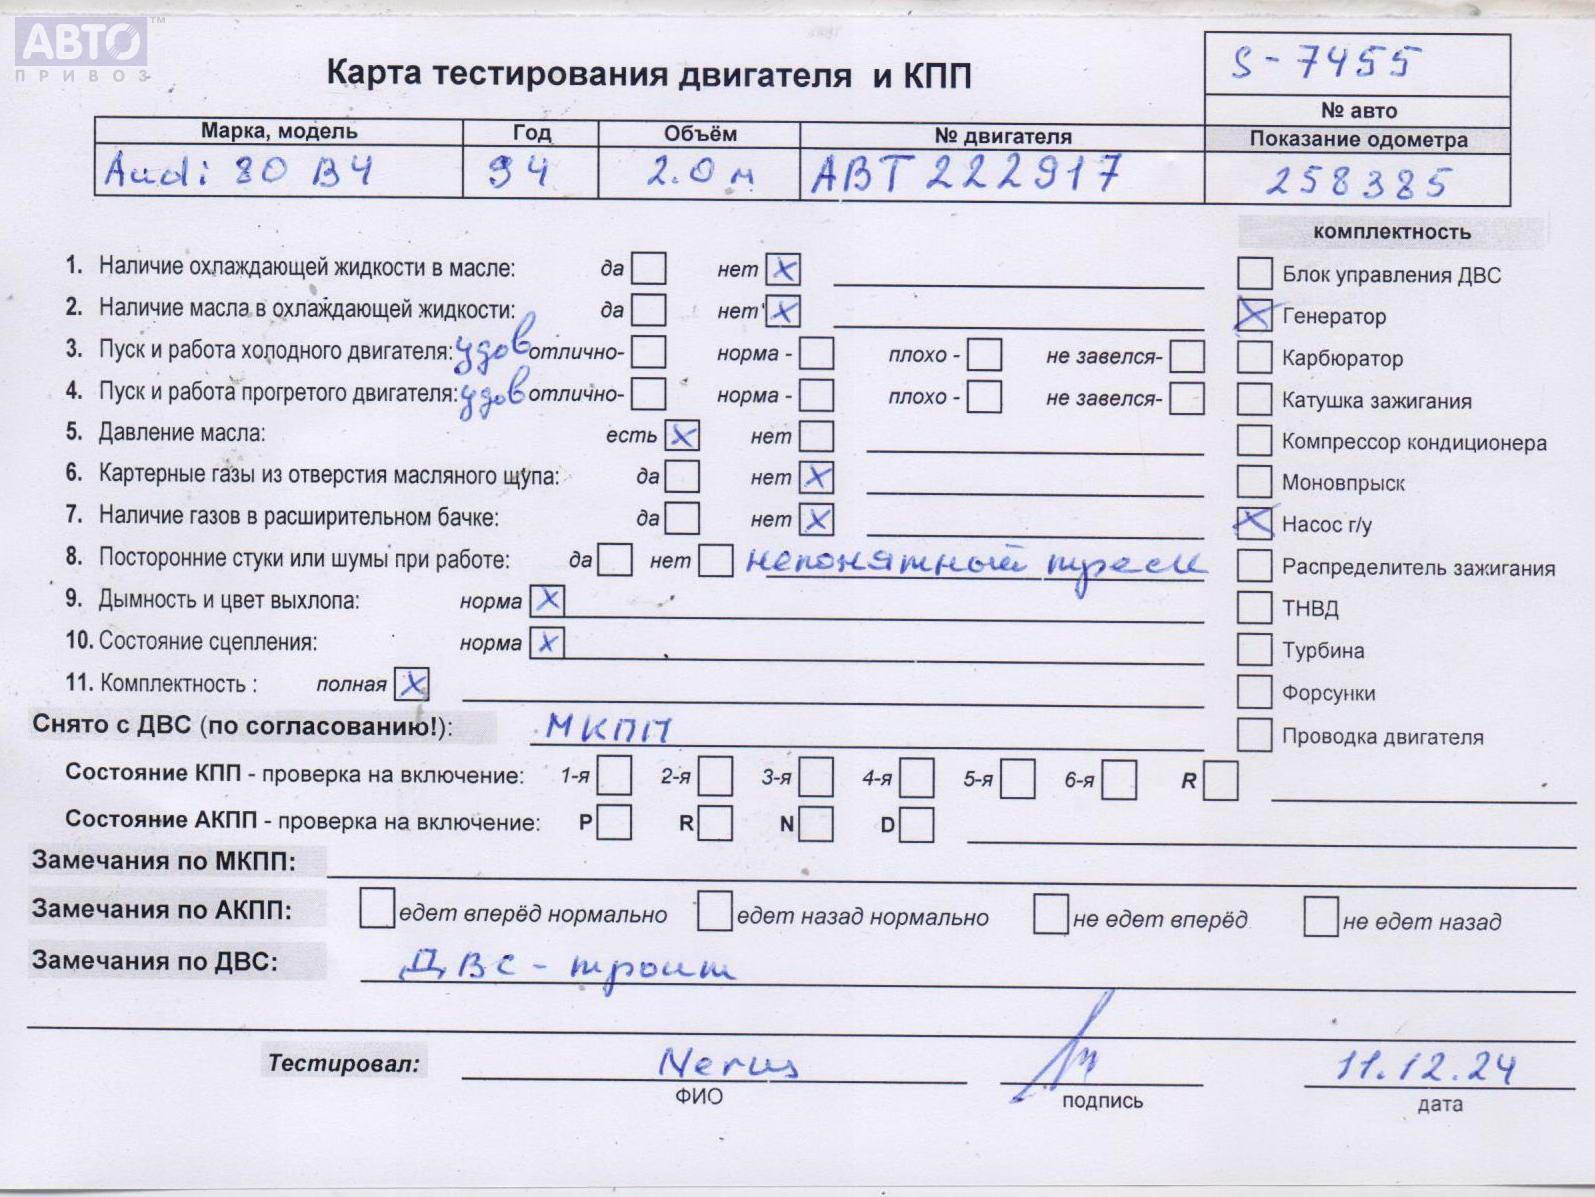 АВТО™
ПРИВОЗ
Карта тестирования двигателя и КПП
S-7455
№ авто
Марка, модель Год Объём № двигателя Показание одометра
Audi 80 B4 94 2.0 м ABT 222917 258385
комплектность
1. Наличие охлаждающей жидкости в масле: да нет X Блок управления ДВС
2. Наличие масла в охлаждающей жидкости: да нет X X Генератор
3. Пуск и работа холодного двигателя: удов отлично- норма - плохо - не завелся- Карбюратор
4. Пуск и работа прогретого двигателя: удов отлично- норма - плохо - не завелся- Катушка зажигания
5. Давление масла: есть X нет Компрессор кондиционера
6. Картерные газы из отверстия масляного щупа: да нет X Моновпрыск
7. Наличие газов в расширительном бачке: да нет X X Насос г/у
8. Посторонние стуки или шумы при работе: да нет непонятный треск Распределитель зажигания
9. Дымность и цвет выхлопа: норма X ТНВД
10. Состояние сцепления: норма X Турбина
11. Комплектность : полная X Форсунки
Снято с ДВС (по согласованию!): МКПП Проводка двигателя
Состояние КПП - проверка на включение: 1-я 2-я 3-я 4-я 5-я 6-я R
Состояние АКПП - проверка на включение: P R N D
Замечания по МКПП:
Замечания по АКПП: едет вперёд нормально едет назад нормально не едет вперёд не едет назад
Замечания по ДВС: ДВС - троит
Тестировал: 11.12.24
ФИО подпись дата